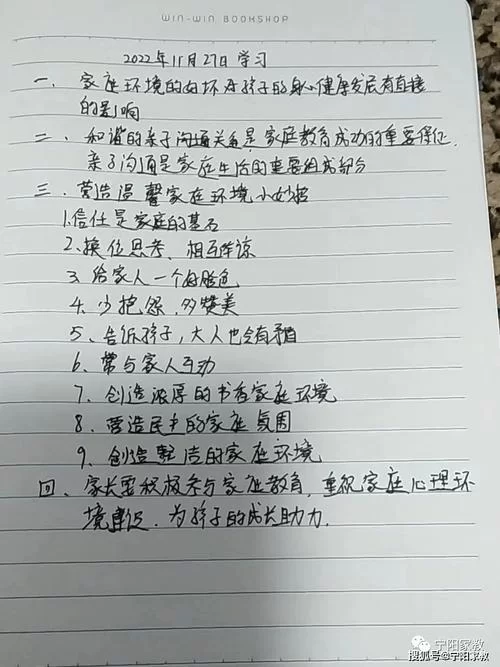 WIN-WIN BOOKSHOP
2022年11月27日学习
一、家庭环境的好坏对孩子的身心健康发展有直接
的影响
二、和谐的亲子沟通关系是家庭教育成功的重要保证,
亲子沟通是家庭生活的重要组成部分
三、营造温馨家庭环境小妙招
1.信任是家庭的基石
2.换位思考、相互体谅
3、给家人一个好脸色
4、少抱怨,多赞美
5、告诉孩子,大人也会有矛盾
6、常与家人互动
7、创造浓厚的书香家庭环境
8、营造民主的家庭氛围
9、创造整洁的家庭环境
四、家长要积极参与家庭教育,重视家庭心理环
境建设,为孩子的成长助力.
宁阳家教
搜狐号@宁阳家教